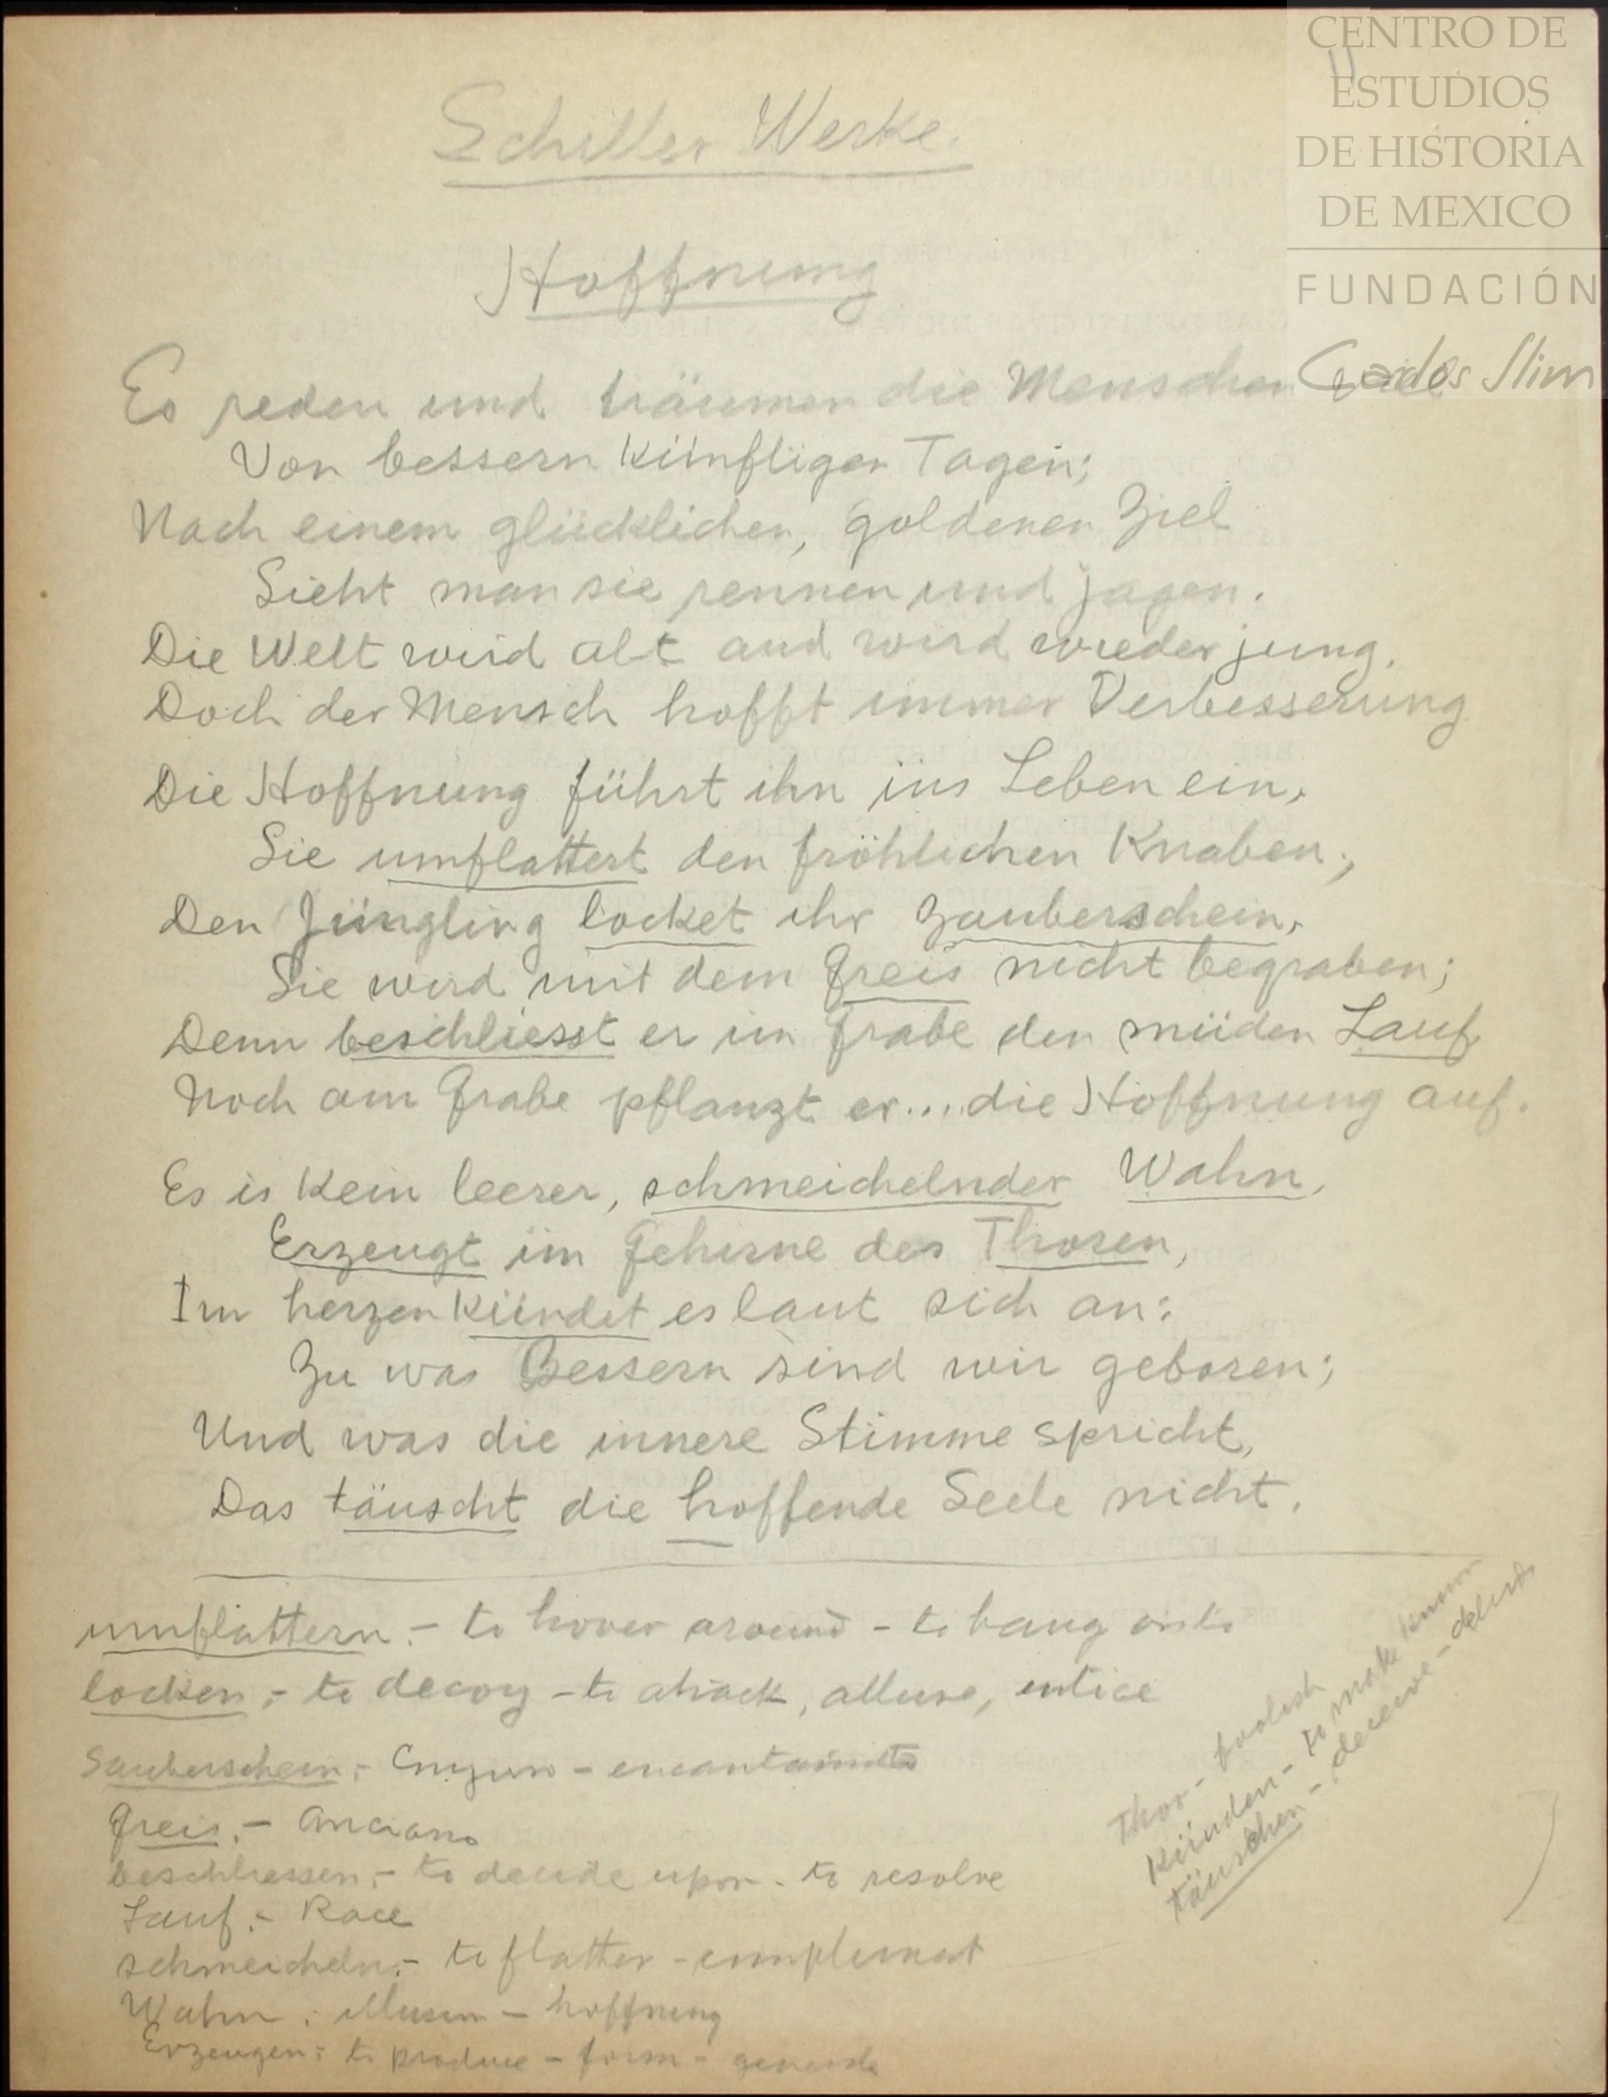 CENTRO DE
ESTUDIOS
DE HISTORIA
DE MEXICO
FUNDACIÓN
Carlos Slim
11
Schiller Werke.
Hoffnung
Es reden und träumen die Menschen viel
Von bessern künftigen Tagen;
Nach einem glücklichen, goldenen Ziel
Sieht man sie rennen und jagen.
Die Welt wird alt und wird wieder jung,
Doch der Mensch hofft immer Verbesserung
Die Hoffnung führt ihn ins Leben ein,
Sie umflattert den fröhlichen Knaben;
Den Jüngling locket ihr Zauberschein,
Sie wird mit dem Greis nicht begraben;
Denn beschliesst er im Grabe den müden Lauf
Noch am Grabe pflanzt er... die Hoffnung auf.
Es is kein leerer, schmeichelnder Wahn,
Erzeugt im Gehirne des Thoren,
Im herzen kündet es laut sich an:
Zu was Bessern sind wir geboren;
Und was die innere Stimme spricht,
Das täuscht die hoffende Seele nicht.
umflattern.- to hover around - to hang onto
locken,- to decoy - to attrack, allure, entice
Sauberschein,- - encantamiento
Greis.- Anciano
beschliessen,- to decide upon - to resolve
Lauf.- Race
schmeicheln,- to flatter - compliment
Wahn.- illusion - hoffnung
Erzeugen:- to produce - form - generate
Thor - foolish
Künden - to make known
täuschen - deceive - delude